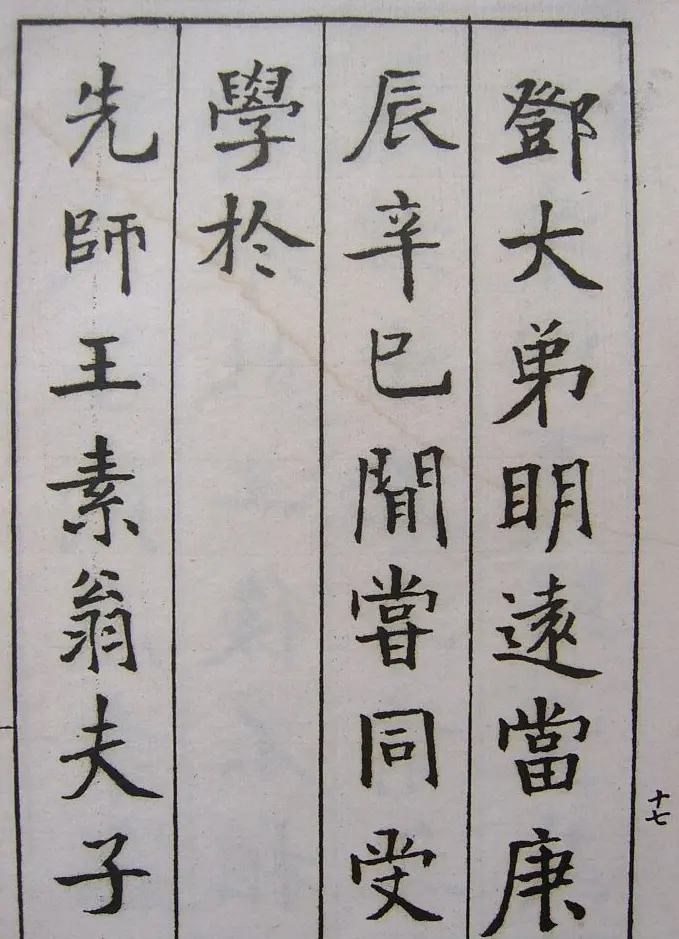 鄧大弟明遠當庚
辰辛巳閒嘗同受
學於
先師王素翁夫子
十七